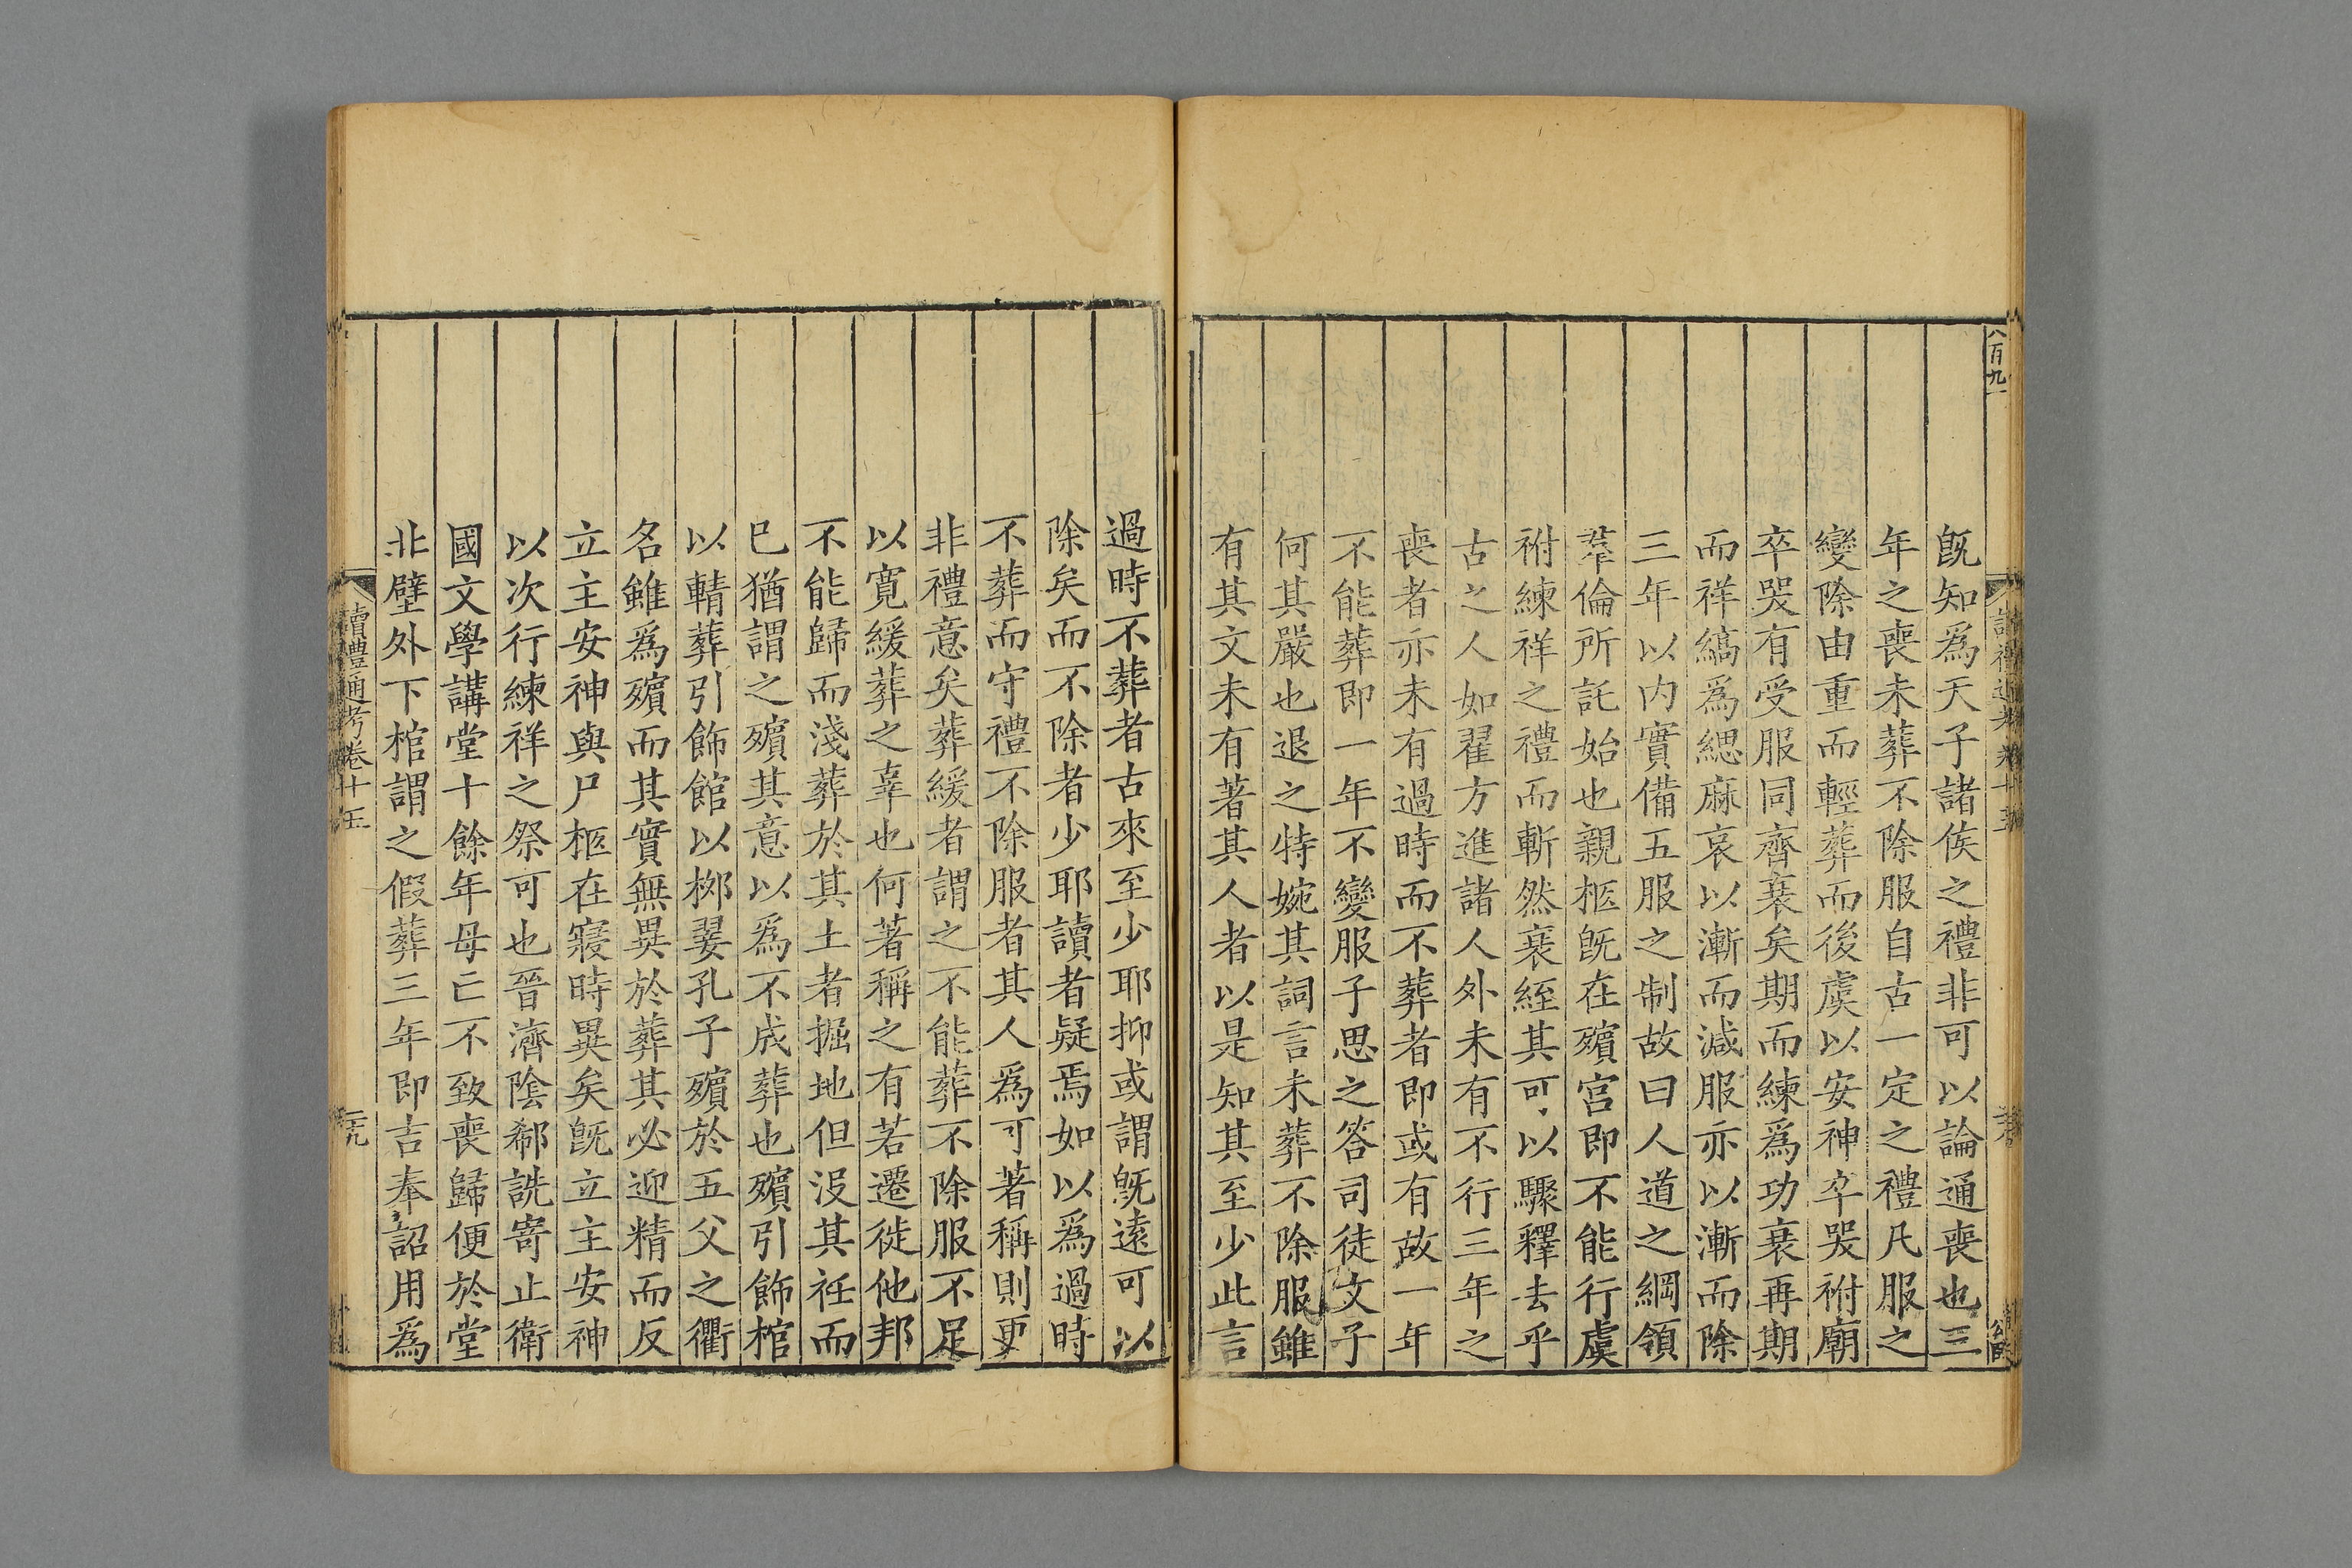 八百九一
既知爲天子諸侯之禮非可以論通喪也三
年之喪未葬不除服自古一定之禮凡服之
變除由重而輕葬而後虞以安神卒哭祔廟
卒哭有受服同齊衰矣期而練爲功衰再期
而祥縞爲緦麻哀以漸而減服亦以漸而除
三年以内實備五服之制故曰人道之綱領
羣倫所託始也親柩既在殯宫即不能行虞
祔練祥之禮而斬然衰絰其可以驟釋去乎
古之人如翟方進諸人外未有不行三年之
喪者亦未有過時而不葬者即或有故一年
不能葬即一年不變服子思之答司徒文子
何其嚴也退之特婉其詞言未葬不除服雖
有其文未有著其人者以是知其至少此言
過時不葬者古來至少耶抑或謂既遠可以
除矣而不除者少耶讀者疑焉如以爲過時
不葬而守禮不除服者其人爲可著稱則更
非禮意矣葬緩者謂之不能葬不除服不足
以寛緩葬之辜也何著稱之有若遷徙他邦
不能歸而淺葬於其土者掘地但沒其衽而
已猶謂之殯其意以爲不成葬也殯引飾棺
以輤葬引飾館以桞翣孔子殯於五父之衢
名雖爲殯而其實無異於葬其必迎精而反
立主安神與尸柩在寢時異矣既立主安神
以次行練祥之祭可也晉濟陰郗詵寄止衛
國文學講堂十餘年母亡不致喪歸便於堂
北壁外下棺謂之假葬三年即吉奉詔用爲
讀禮通考卷十五
二九